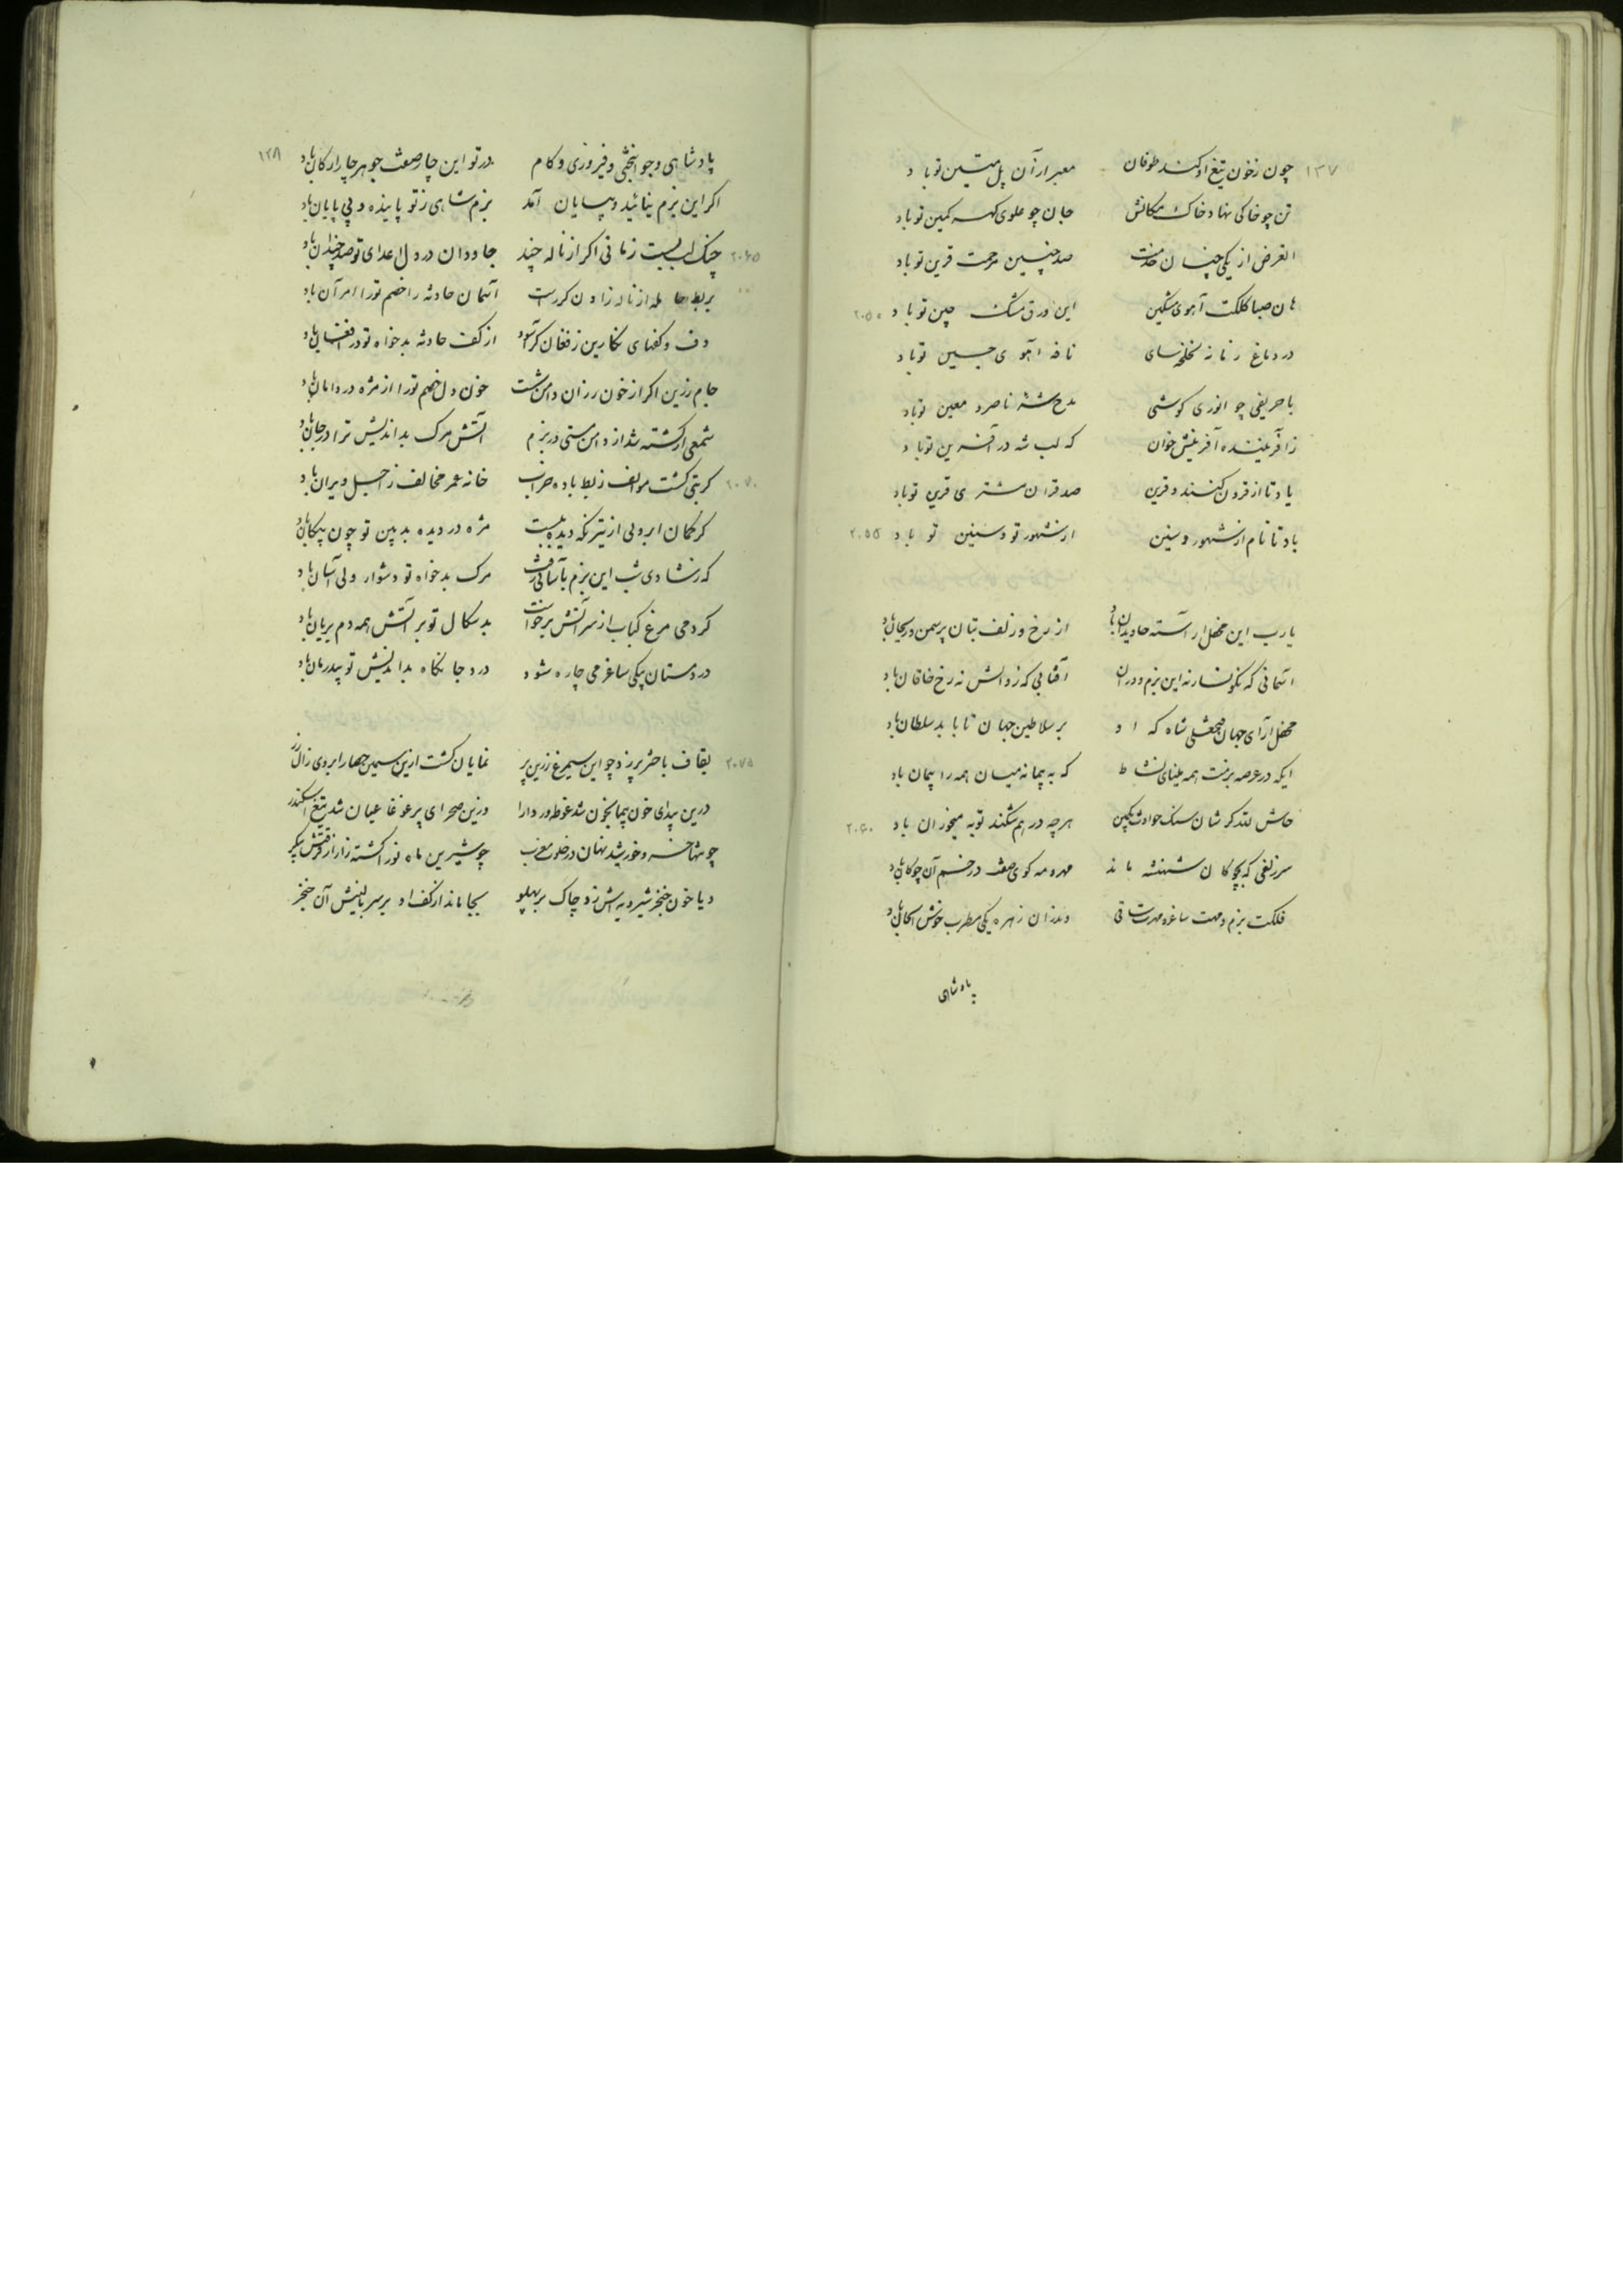 ۱۳۷
چون ز خون تیغ او کند طوفان معبر ار آن پل متین تو باد
تن چو خاکی نهاد خاک مکانش جان چو علوی گهر مکین تو باد
الغرض از یکی چنان خدمت صد چنین مرحمت قرین تو باد
هان صبا کلکت آهوی مشکین این ورق مشک چین تو باد ۲۰۵۰
در دماغ زمانه لخلخه‌سای نافه آهوی چین تو باد
با حریفی چو انوری کوشی مدح شه ناصر و معین تو باد
ز آفریننده آفرینش خوان که لب شه در آفرین تو باد
یاد تا از قرون کنند و قرین صد قران مشتری قرین تو باد
باد تا نام از شهور و سنین از شهور تو و سنین تو باد ۲۰۵۵
یارب این محفل آراسته جاویدان باد از رخ و زلف بتان پر سمن و ریحان باد
آسمانی که نگونسار نه این بزم و در آن آفتابی که زوالش نه رخ خاقان باد
محفل آرای جهان فتحعلی شاه که او بر سلاطین جهان تا بابد سلطان باد
ایکه در عرصه بزمت همه مینای نشاط که به پیمانه میان همه را پیمان باد
حاش لله کر شان سنک حوادث هرچه در هم شکند توبه میخوران باد ۲۰۶۰
سر زلفی که بچوکان شهنشه ماند مهر و مه کوی صفت در خم آن چوکان باد
فلکت بزم و مهت ساغر و مهرت ساقی وندر آن زهره یکی مطرب خوش الحان باد
پادشاهی
۱۳۸
پادشاهی و جوانبختی و فیروزی و کام در تو این چار صفت جوهر چار ارکان باد
اکر این بزم بپائید و بپایان آمد بزم شاهی ز تو پاینده و بی پایان باد
چنک لب بست زمانی اکر از ناله چند جاودان در دل اعدای تو صد چندان باد ۲۰۶۵
بربط حامله از ناله زادن کر رست آسمان حادثه را خصم تو را امر آن باد
دف و کفهای نکارین ز فغان کر آسود از کف حادثه بدخواه تو در افغان باد
جام زرین اکر از خون رزان دامن شست خون دل خصم تو را از مژه در دامان باد
شمعی ار کشته شد از دامن مستی در بزم آتش مرک بد اندیش ترا در جان باد
کر بتی کشت موالف ز بط باده خراب خانه عمر مخالف ز اجل ویران باد ۲۰۷۰
کر کمان ابروئی از تیر نکه دیده ببست مژه در دیده بدبین تو چون پیکان باد
که ز شادی شب این بزم بآسانی رفت مرک بدخواه تو دشوار ولی آسان باد
کر دمی مرغ کباب از سر آتش برخواست بدسکال تو بر آتش همه دم بریان باد
درد مستان بیکی ساغر می چاره شود درد جانکاه بداندیش تو بیدرمان باد
بقاف باختر پر زد چو این سیمرغ زرین پر نمایان کشت ازین سیمین حصار ابروی زال زر ۲۰۷۵
درین بیدای خون پیما بخون شد غوطه ور دارا وزین صحرای پر غوغا عیان شد تیغ اسکندر
چو شد خسرو خورشید پنهان در خلوت مغرب چو شیرین ماه نو را کشته زار از فرقتش پیکر
و یا خون خنجر شیرویه‌اش زد چاک بر پهلو بجا ماند از کف او بر سر بالینش آن خنجر